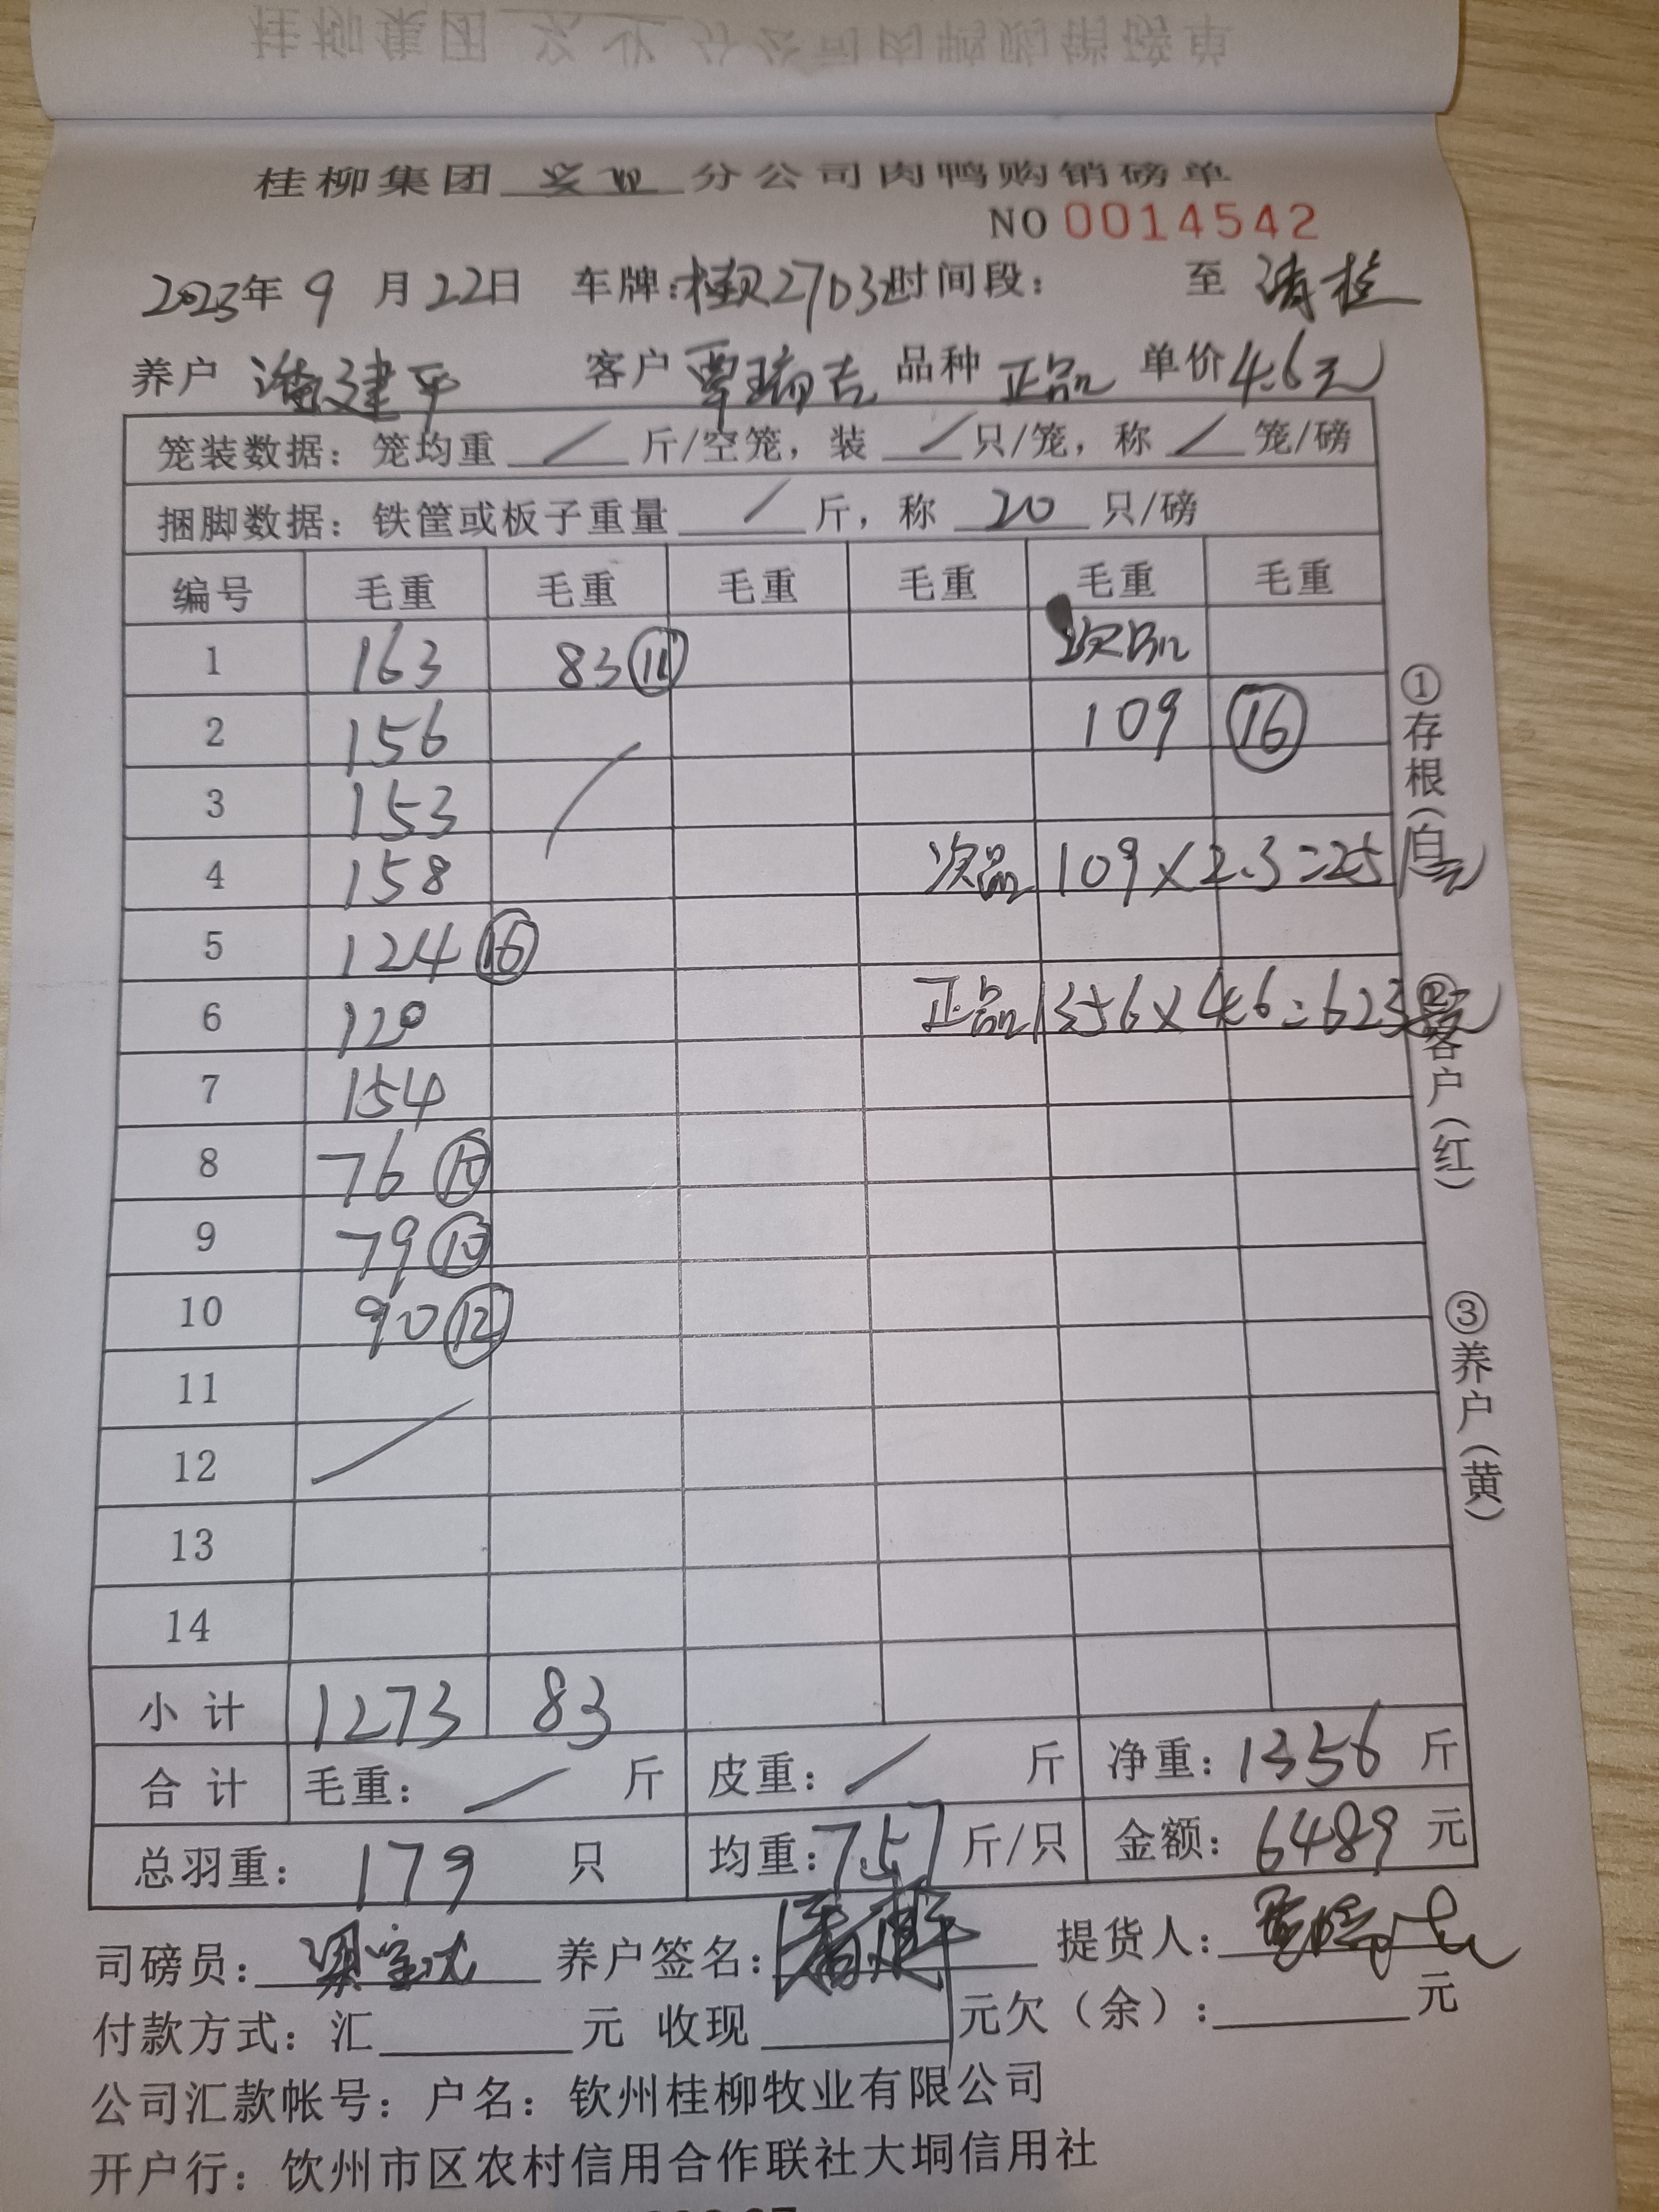 桂柳集团 分公司肉鸭购销磅单
NO 0014542
2023年9月22日 车牌: 时间段: 至
养户 潘建平 客户 覃瑞吉 品种 正品 单价 4.6元
笼装数据: 笼均重 / 斤/空笼, 装 / 只/笼, 称 / 笼/磅
捆脚数据: 铁筐或板子重量 / 斤, 称 20 只/磅
编号 毛重 毛重 毛重 毛重 毛重 毛重
1 163 83 ⑪ 次品
2 156 109 ⑯
3 153
4 158 次品 109×2.3=251元
5 124 ⑯
6 120 正品 1356×4.6=623
7 154
8 76 ⑩
9 79 ⑩
10 90 ⑫
11
12
13
14
小计 1273 83
合计 毛重: / 斤 皮重: / 斤 净重: 1356 斤
总羽重: 179 只 均重: 7.57 斤/只 金额: 6489 元
司磅员: 养户签名: 提货人:
付款方式: 汇 元 收现 元欠(余): 元
公司汇款帐号: 户名: 钦州桂柳牧业有限公司
开户行: 饮州市区农村信用合作联社大垌信用社
①存根(白)
②客户(红)
③养户(黄)